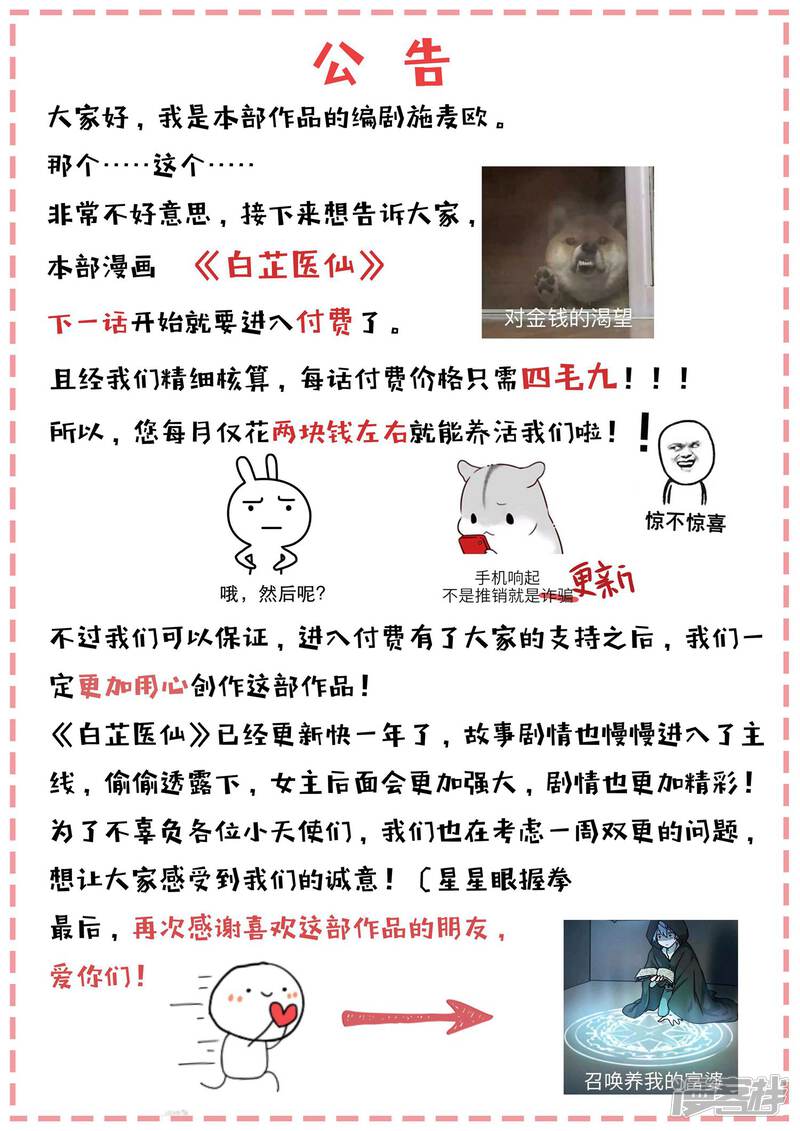 公 告
大家好，我是本部作品的编剧施麦欧。
那个……这个……
非常不好意思，接下来想告诉大家，
本部漫画 《白芷医仙》
下一话开始就要进入付费了。
对金钱的渴望
且经我们精细核算，每话付费价格只需四毛九！！！
所以，您每月仅花两块钱左右就能养活我们啦！！
惊不惊喜
哦，然后呢？
手机响起
不是推销就是诈骗
更新
不过我们可以保证，进入付费有了大家的支持之后，我们一
定更加用心创作这部作品！
《白芷医仙》已经更新快一年了，故事剧情也慢慢进入了主
线，偷偷透露下，女主后面会更加强大，剧情也更加精彩！
为了不辜负各位小天使们，我们也在考虑一周双更的问题，
想让大家感受到我们的诚意！〔星星眼握拳
最后，再次感谢喜欢这部作品的朋友，
爱你们！
召唤养我的富婆
漫客栈